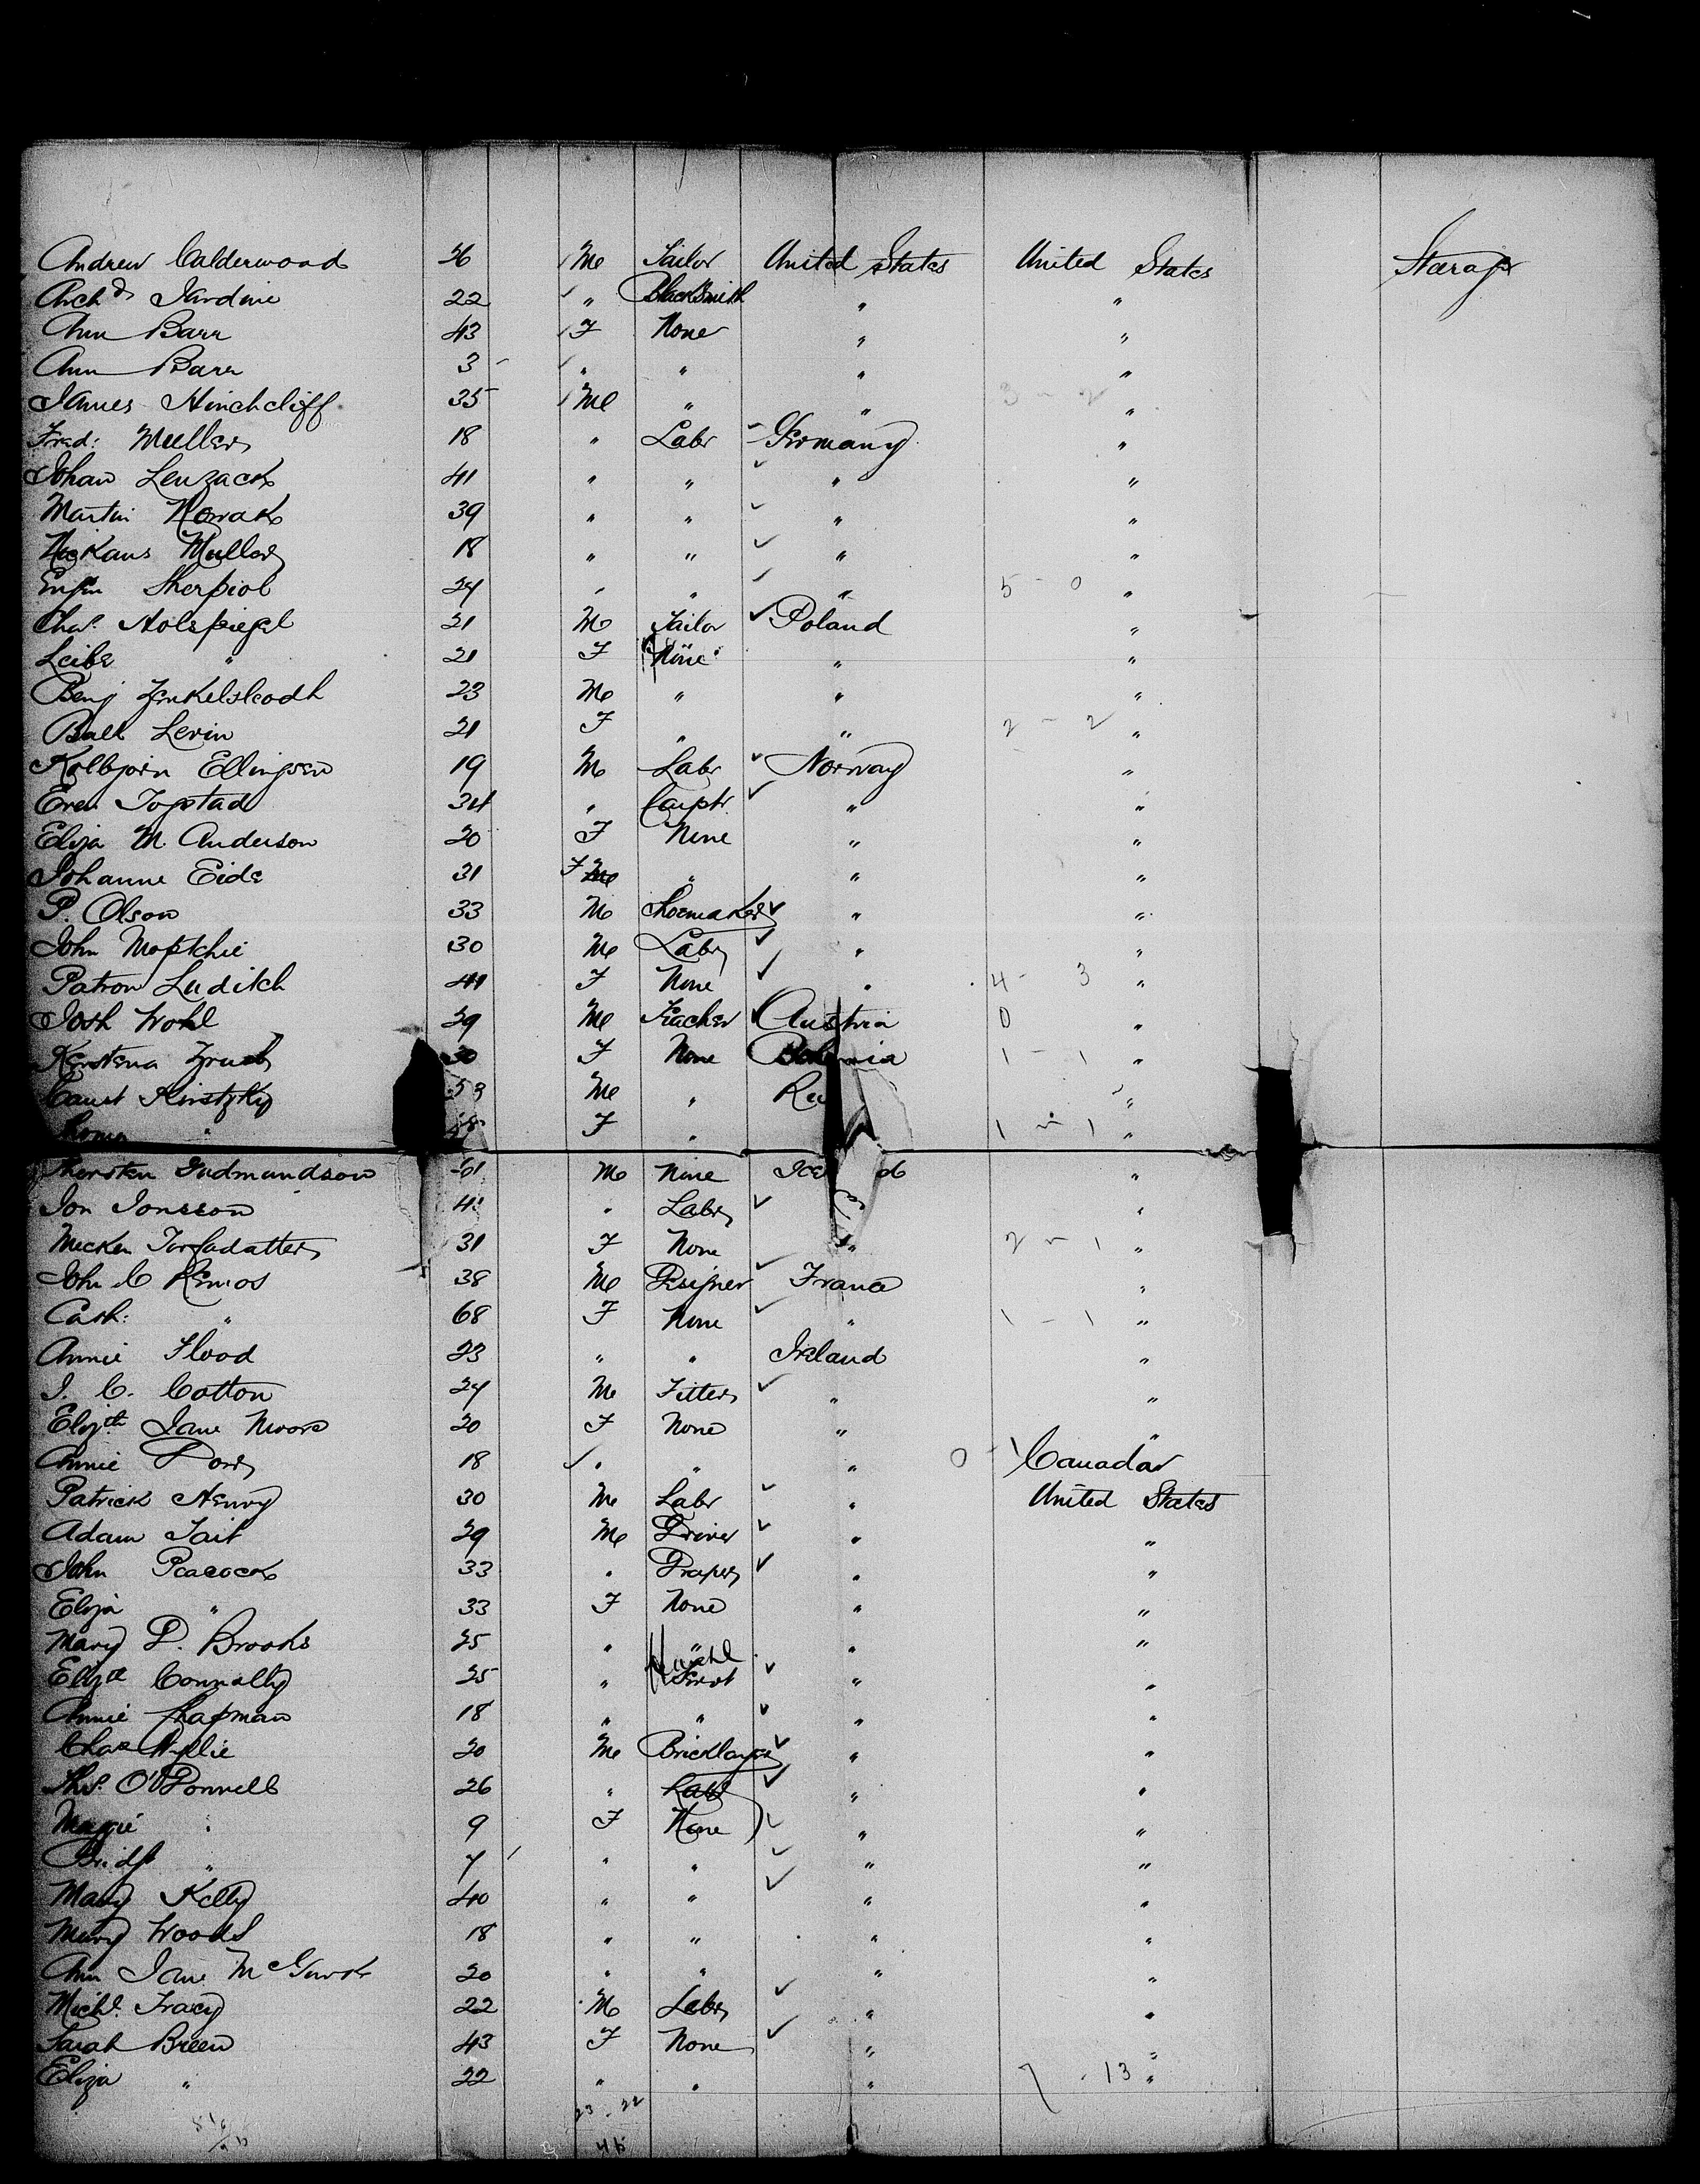 Andrew Calderwood 36 Me Tailor United States United States Steerage
Archd Jardine 22 " BlackSmith " "
Ann Barr 43 F None " "
Ann Barr 3 " " " "
James Hinchcliff 35 Me " " 3 - 2 "
Fred: Muller 18 " Labr Germany "
Johan 41 " " " "
Martin Nowak 39 " " " "
Muller 18 " " " "
24 " " " 5 - 0 "
Chas. Holspiegel 21 M Tailor Poland "
Leibe " 21 F None "  "
Benj 23 Me " " "
Levin 21 F " " 2 - 2 "
Kolbjorn Ellingsen 19 M Labr Norway "
Even Togstad 34 " Carptr " "
Eliza M Anderson 20 F None " "
Johanne Eide 31 F " " "
P. Olson 33 M Shoemaker " "
John 30 Me Labr " "
Patron Luditch F None " 4 - 3 "
Josh Wohl 39 Me Teacher Austria 0 "
30 F None Bohemia 1 - 1 "
Me " Ru "
" F " 1 - 1 "
Thorsten Gudmundson 61 Me None Ice d "
Jon Jonsson Labr "
31 F None " 2 - 1 "
John C Remos 38 Me Designer France "
Cath: " 68 F None " 1 - 1 "
Annie Flood 23 " " Ireland "
J. C. Cotton 24 Me Fitter " "
Elizth Jane Moore 20 F None " "
Annie 18 " " " 0 - 1 Canada
Patrick Henry 30 Me Labr " United States
Adam Tait 29 Me Driver " "
John Peacock 33 " Draper " "
Eliza " 33 F None " "
Mary D. Brooks 25 " " " "
Elizth Connolly 25 " Servt " "
Annie Chapman 18 " " " "
Chas Wylie 20 Me Bricklayer " "
Thos. O'Donnell 26 " Labr " "
Maggie " 9 F None " "
Bridgt " 7 " " " "
Mary Kelly 40 " " " "
Mary Woods 18 " " " "
Ann Jane McGurk 20 " " " "
Michl. Tracy 22 M Labr " "
Sarah Breen 43 F None " "
Eliza " 22 " " " 7 - 13 "
23 - 22